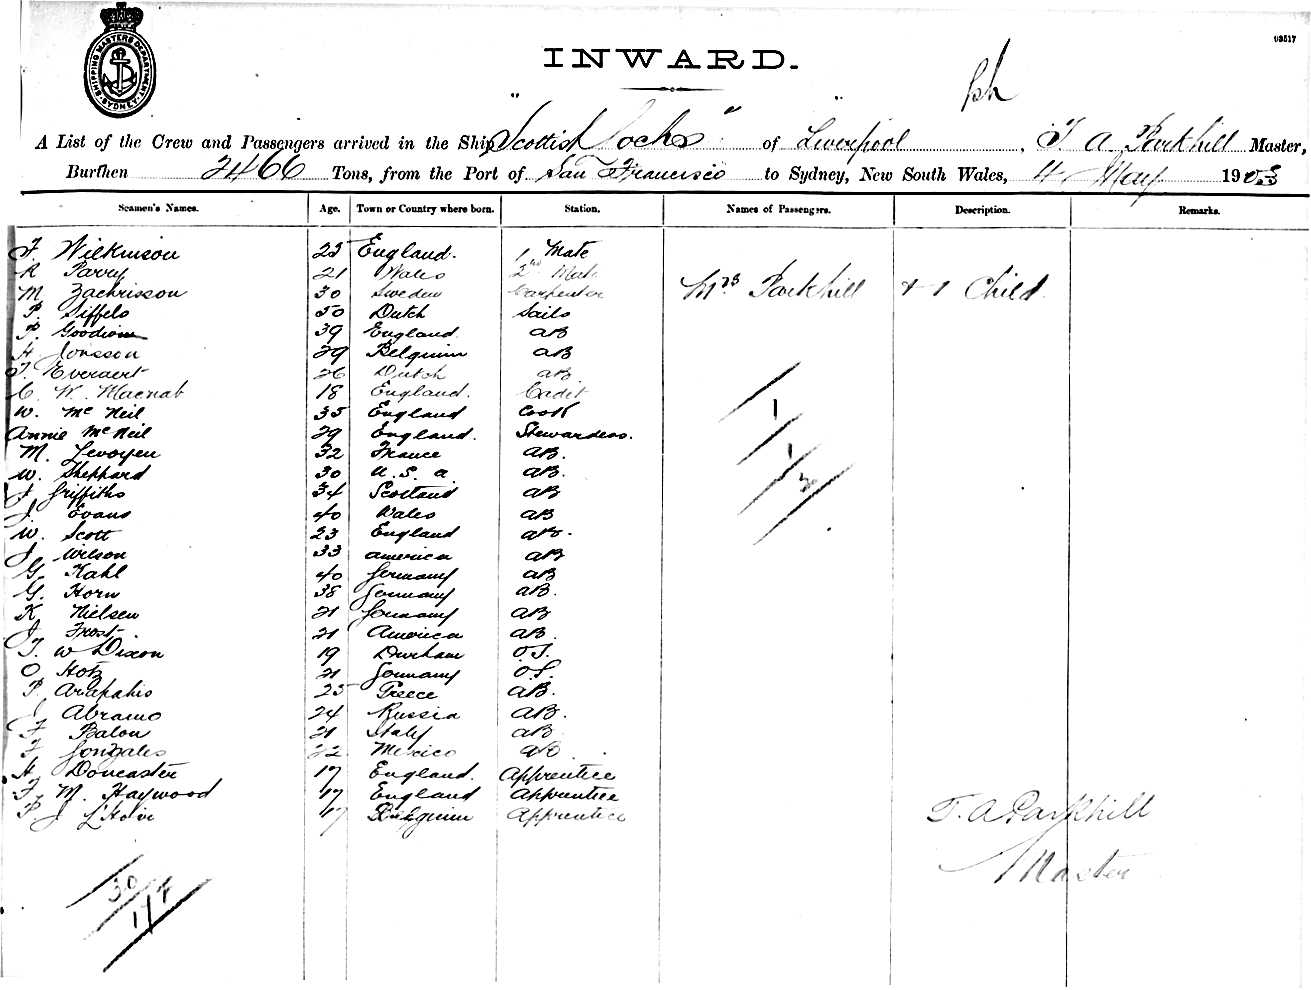 SHIPPING MASTERS DEPARTMENT SYDNEY
03517
INWARD.
A List of the Crew and Passengers arrived in the Ship "Scottish Lochs" of Liverpool, T A Parkhill Master,
Burthen 2466 Tons, from the Port of San Francisco to Sydney, New South Wales, 4 May 1903
Seamen's Names. Age. Town or Country where born. Station. Names of Passengers. Description. Remarks.
F. Wilkinson 25 England. 1 Mate
R Parry 21 Wales 2nd Mate
M Zachrisson 30 Sweden Carpenter Mrs Parkhill + 1 Child
P. Siffels 50 Dutch Sails
P. Goodwin 39 England AB
H Jonsson 29 Belguim AB
T. Everaert 26 Dutch AB
C. W. Macnab 18 England. Cadit
W. Mc Neil 35 England Cook
Annie McNeil 29 England. Stewardess.
M. Levoyen 32 France AB.
W. Sheppard 30 U. S. A AB.
J Griffiths 34 Scotland AB
J. Evans 40 Wales AB
W. Scott 23 England AB.
J Wilson 33 America AB
G. Kahl 40 Germany AB
G. Horn 38 Germany AB.
K Nielsen 21 Germany AB
J Frost 21 America AB.
T. W Dixon 19 Durham O.S.
O Hotz 21 Germany O.S.
P. Arapahis 25 Greece AB.
Abramo 24 Russia AB.
F Balon 21 Italy AB
F Gonzales 22 Mexico AB
H Doncaster 17 England. Apprentice
F. M. Haywood 17 England Apprentice
P J 17 Belguim Apprentice
T. A Parkhill
Master
1/1/3
30/1/7